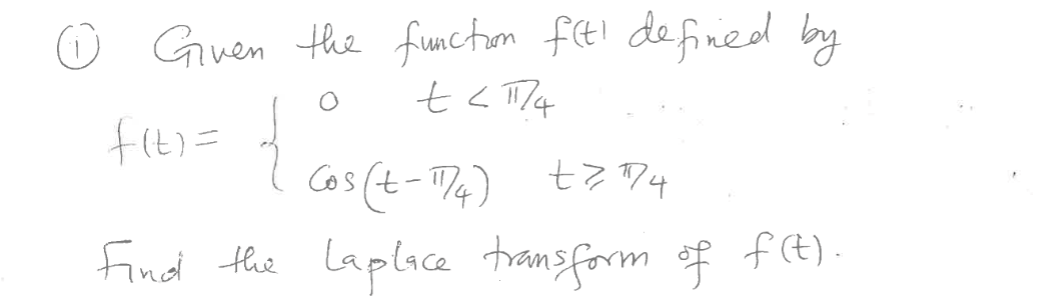 ① Given the function f(t) defined by
0 t < π/4
f(t) = {
cos(t - π/4) t ≥ π/4
Find the Laplace transform of f(t).